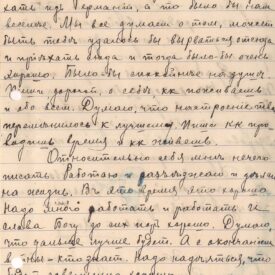 хать из Германт, а то было бы нам
веселее. Мы все думаем о том, может
быть тебе удалось бы вырваться оттуда
и приехать сюда и тогда было бы очень
хорошо. Было бы спокойнее на душе.
Пиши дорогой, о себе как поживаешь
и обо всем. Думаю, что настроение твое
переменилось к лучшему. Пиши как про
водишь время и как живешь.
Относительно себя мне нечего
писать. Работаю и
на жизнь. В это время это хорошо.
Надо много работать и работать и
слава Богу до сих пор хорошо. Думаю,
что дальше лучше будет. А с окончанием
войны - кто знает. Надо надеяться, что